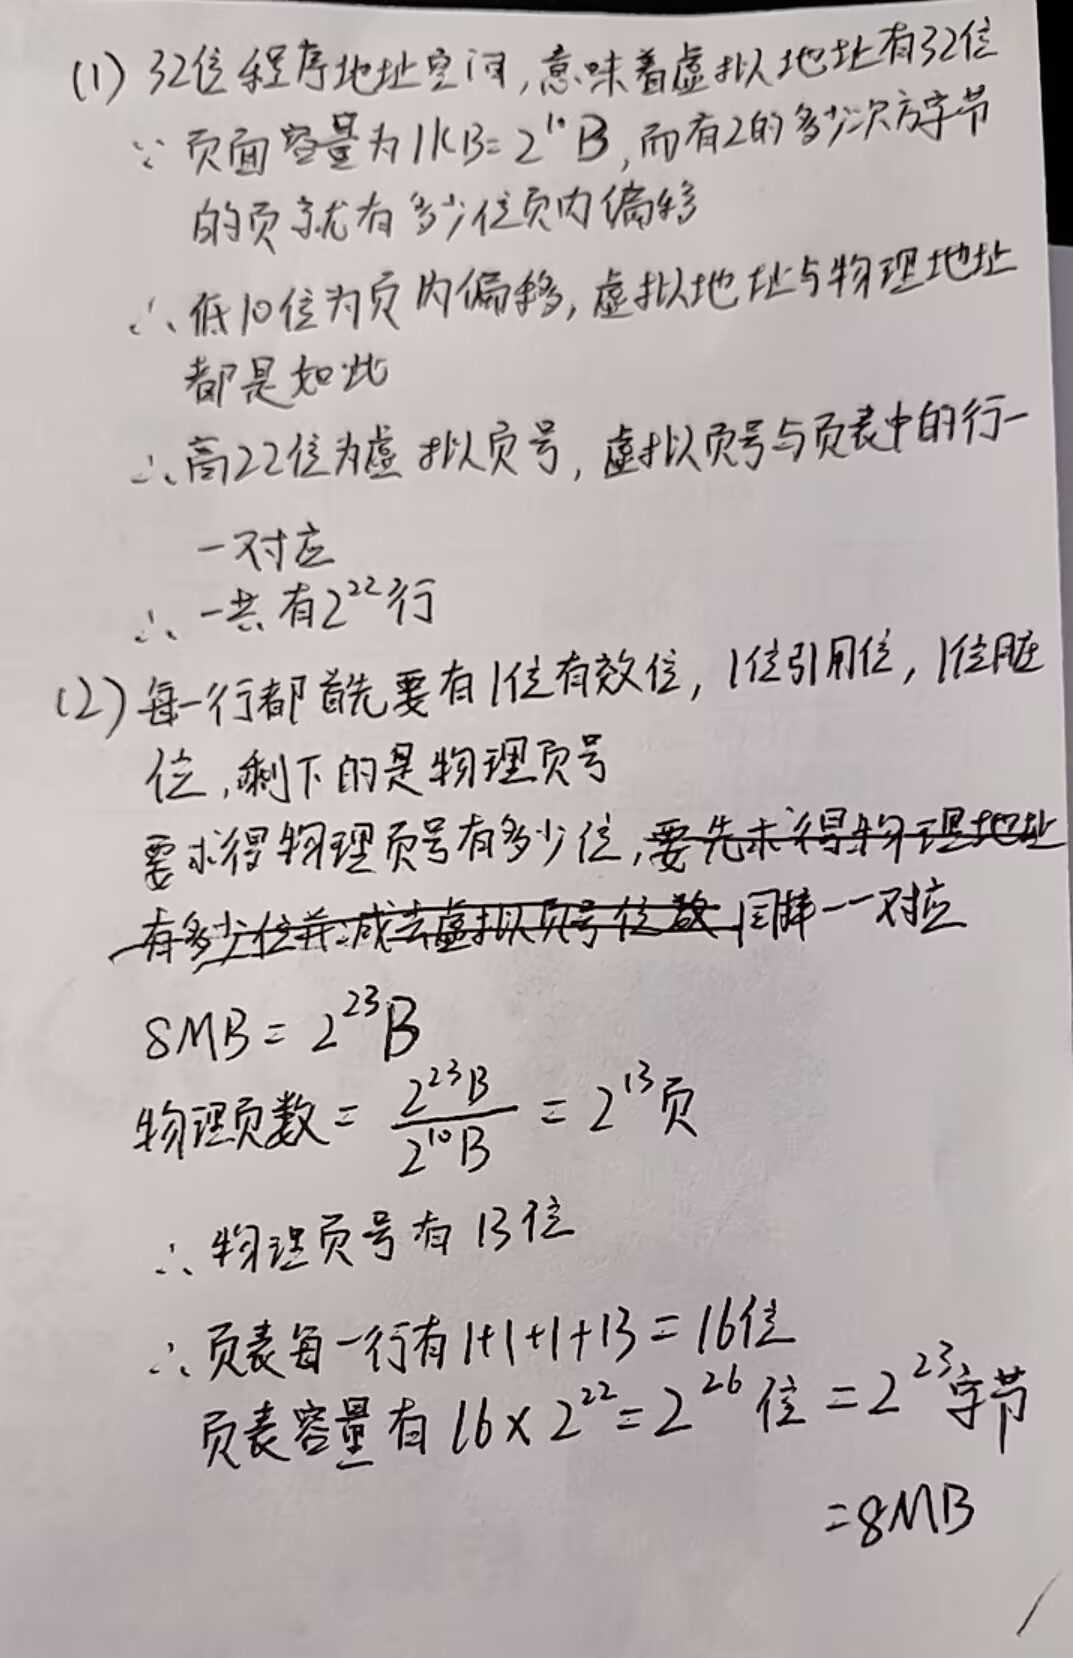 (1) 32位程序地址空间,意味着虚拟地址有32位
∵ 页面容量为1KB=2¹⁰B,而有2的多少次方字节
的页就有多少位页内偏移
∴ 低10位为页内偏移,虚拟地址与物理地址
都是如此
∴ 高22位为虚拟页号,虚拟页号与页表中的行一
一对应
∴ 一共有2²²行
(2) 每一行都首先要有1位有效位,1位引用位,1位脏
位,剩下的是物理页号
要求得物理页号有多少位,要先求得物理地址
有多少位并减去虚拟页号位数 同样一一对应
8MB=2²³B
物理页数=2²³B/2¹⁰B=2¹³页
∴ 物理页号有13位
∴ 页表每一行有1+1+1+13=16位
页表容量有16×2²²=2²⁶位=2²³字节
=8MB